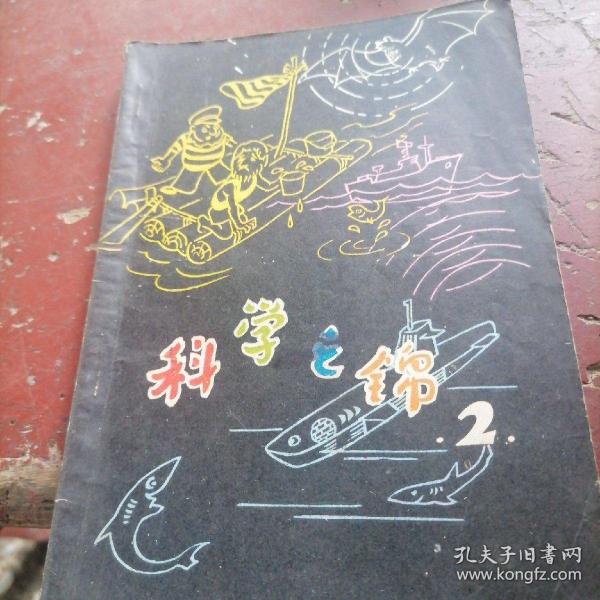 科学七锦
.2.
孔夫子旧书网
www.kongfz.com